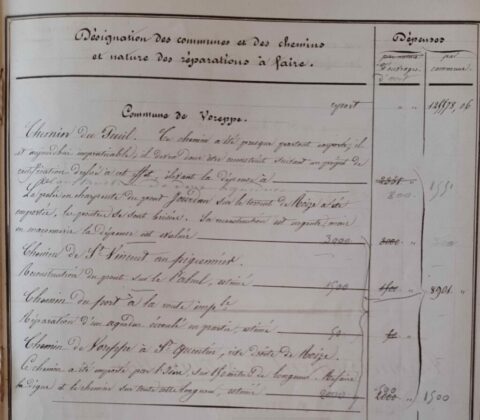 Désignation des communes et des chemins
et nature des réparations à faire.
Dépenses
par nature d'ouvrages d'art
par commune
Commune de Voreppe.
report " " 128578,06
Chemin du Bueil. Ce chemin a été presque partout emporté, il
est aujourd'hui impraticable, il devra donc être reconstruit suivant un projet de
rectification dressé à cet effet, élevant la dépense à 800 " 1551
La partie en charpente du pont Jourdan sur le torrent de Roize a été
emportée, les poutres se sont brisées. La reconstruction est urgente, mais
en maçonnerie la dépense est évaluée 3000 3000 "
Chemin de St Vincent au
Reconstruction du pont sur le estimé 1500 1500 " 8901 "
Chemin du port à la route imple
Réparation d'un aqueduc écroulé en partie, estimé 50 "
Chemin de Voreppe à St Quentin, rive droite de Roize.
Ce chemin a été emporté par l'Isère, sur de longueur. Refaire
la digue et le chemin sur toute cette longueur, estimé 2000 500 1500